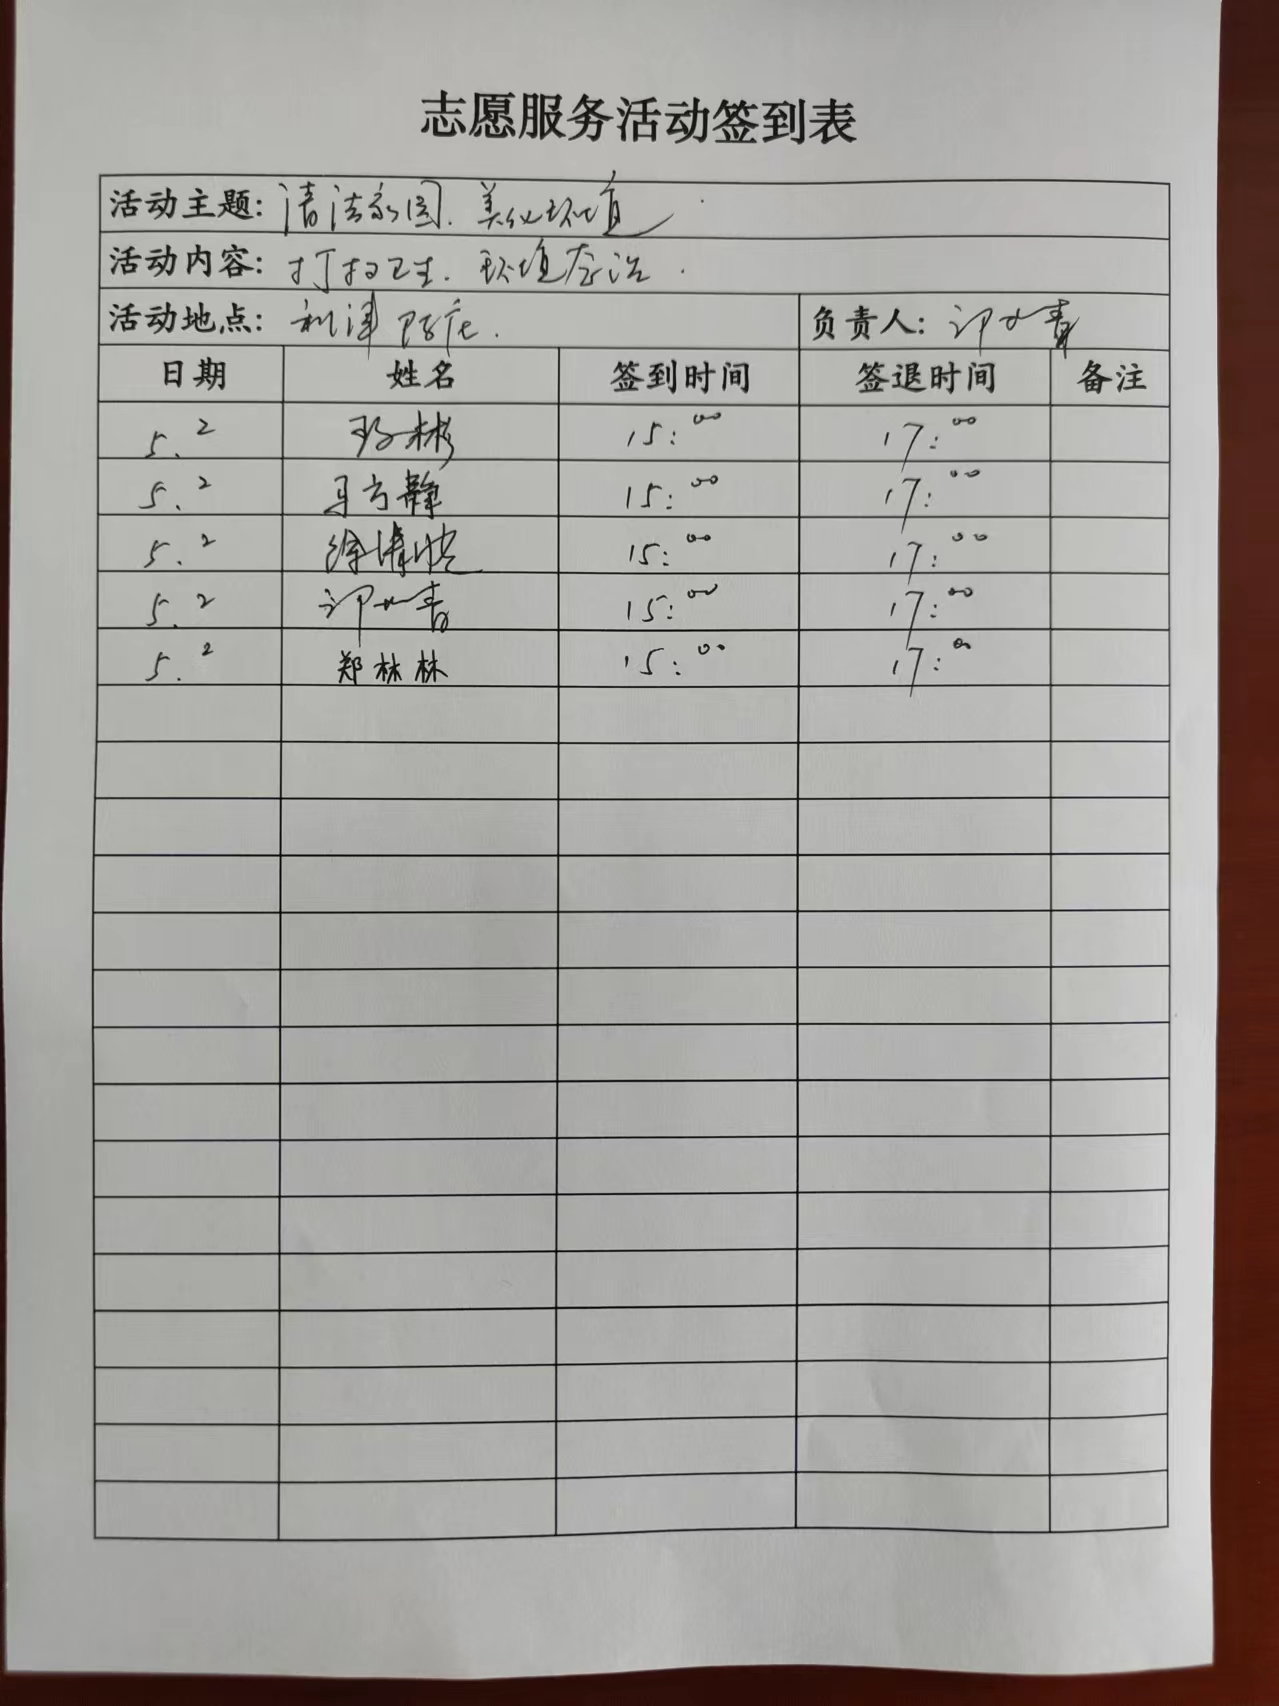 志愿服务活动签到表
活动主题: 清洁家园. 美化环境
活动内容: 打扫卫生. 环境整治.
活动地点: 利津 负责人:
日期 姓名 签到时间 签退时间 备注
5.2 彬 15:00 17:00
5.2 马方静 15:00 17:00
5.2 徐 15:00 17:00
5.2 15:00 17:00
5.2 郑林林 15:00 17:00